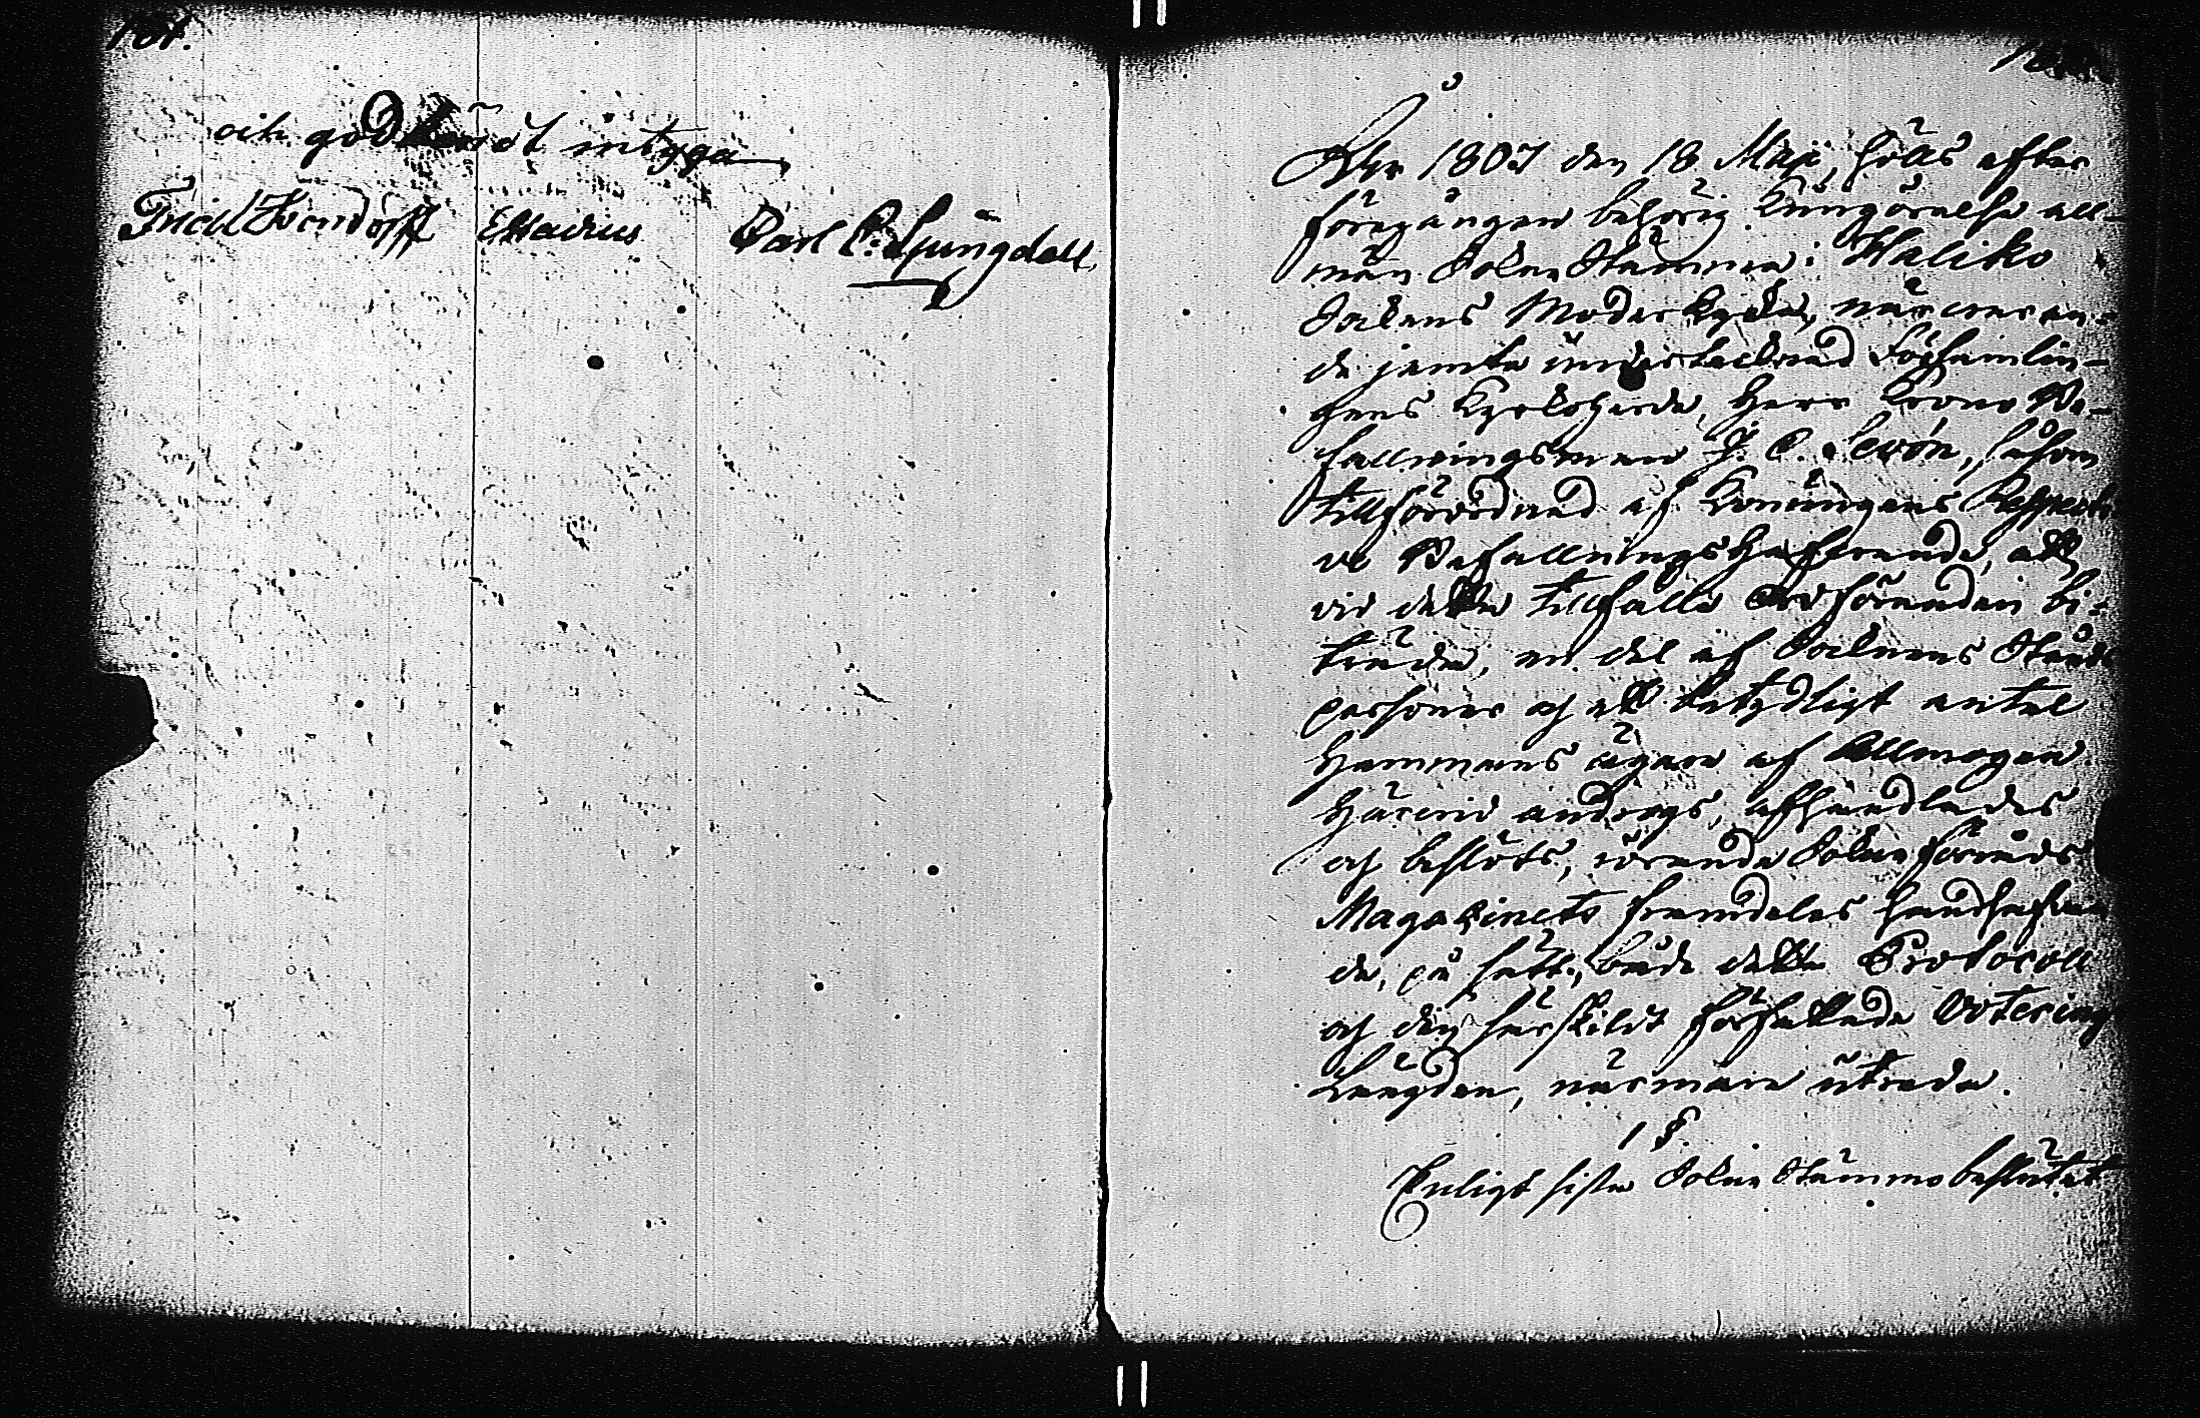 181.
och godkändt intyga
Fried Avendorff E Stadius Carl P. Ljungdell
År 1807 den 18 Maji, hölls efter
föregången behörig kungörelse all-
män Sokne Stämma i Haliko
Soknens Moder kyrka, närvaran-
de jemte undertecknad Församlin-
gens Kyrkoherde, Herr Krono Be-
fallningsman J. P. Levón, såsom
tillförordnad af Konungens Respecti
ve Befallningshafvande, att
vid detta tillfälle Ordföranden bi-
träda, en del af Soknens Stånds
personer och ett betydligt antal
Hemmans ägare af Allmogen
Härvid androgs, afhandlades
och beslöts, rörande Sokne förråds
Magazinets framdeles handhafvan
de, på sätt, både detta Protocoll
och den särskildt författade Votering
Längden, närmare utreda.
1 §.
Enligt sista Sokne Stämmo beslutet